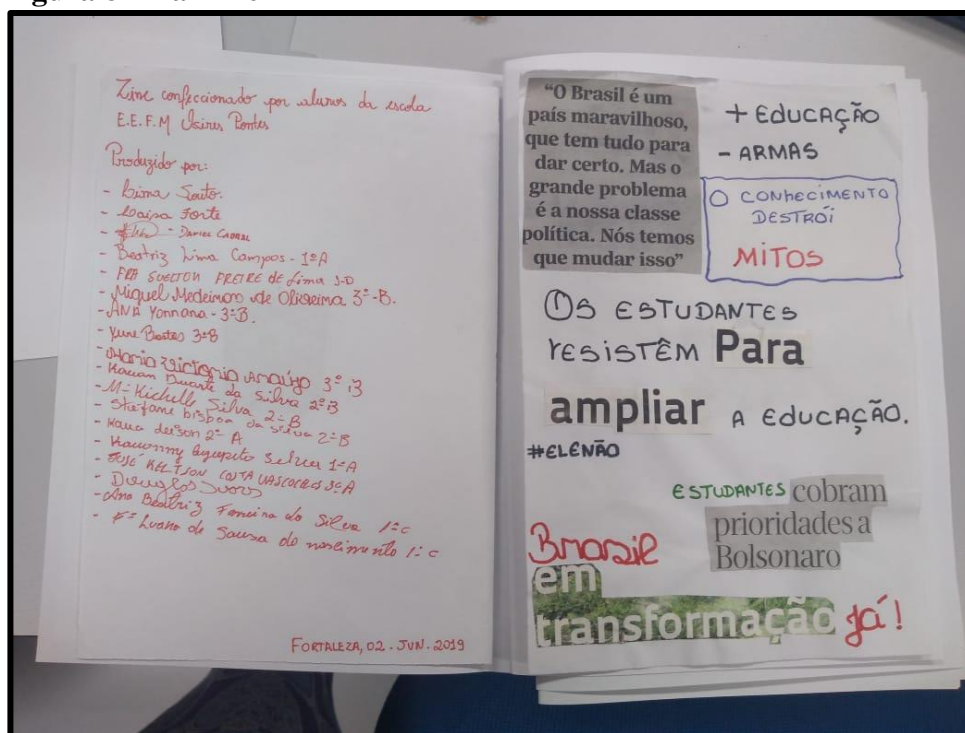 Zine confeccionado por alunos da escola
E.E.F.M Pontes
Produzido por:
- Lima Souto.
- Laisa Forte
- Daniel Cabral
- Beatriz Lima Campos - 1ª A
- FRA SUELTON FREIRE de Lima 3-D
- Miguel Medeiros de Oliveira 3ª-B.
- ANA Yonnana - 3ªB.
- Bastos 3ªB
- Maria Victoria Araújo 3ª B
- Kauan Duarte da Silva 2ª B
- Mª Kichelle Silva 2ª B
- Stefane da Silva 2ª B
- Kaua 2ª A
- 1ª A
- JOSÉ COSTA VASCONCELOS 3ª A
- Douglas
- Ana Beatriz Ferreira da Silva 1ª C
- Fª Luana de Sousa do nascimento 1ª C
FORTALEZA, 02. JUN. 2019
“O Brasil é um
país maravilhoso,
que tem tudo para
dar certo. Mas o
grande problema
é a nossa classe
política. Nós temos
que mudar isso”
+ EDUCAÇÃO
- ARMAS
O CONHECIMENTO
DESTRÓI
MITOS
OS ESTUDANTES
RESISTÊM Para
ampliar A EDUCAÇÃO.
#ELENÃO
ESTUDANTES cobram
prioridades a
Bolsonaro
Brasil
em
transformação já!